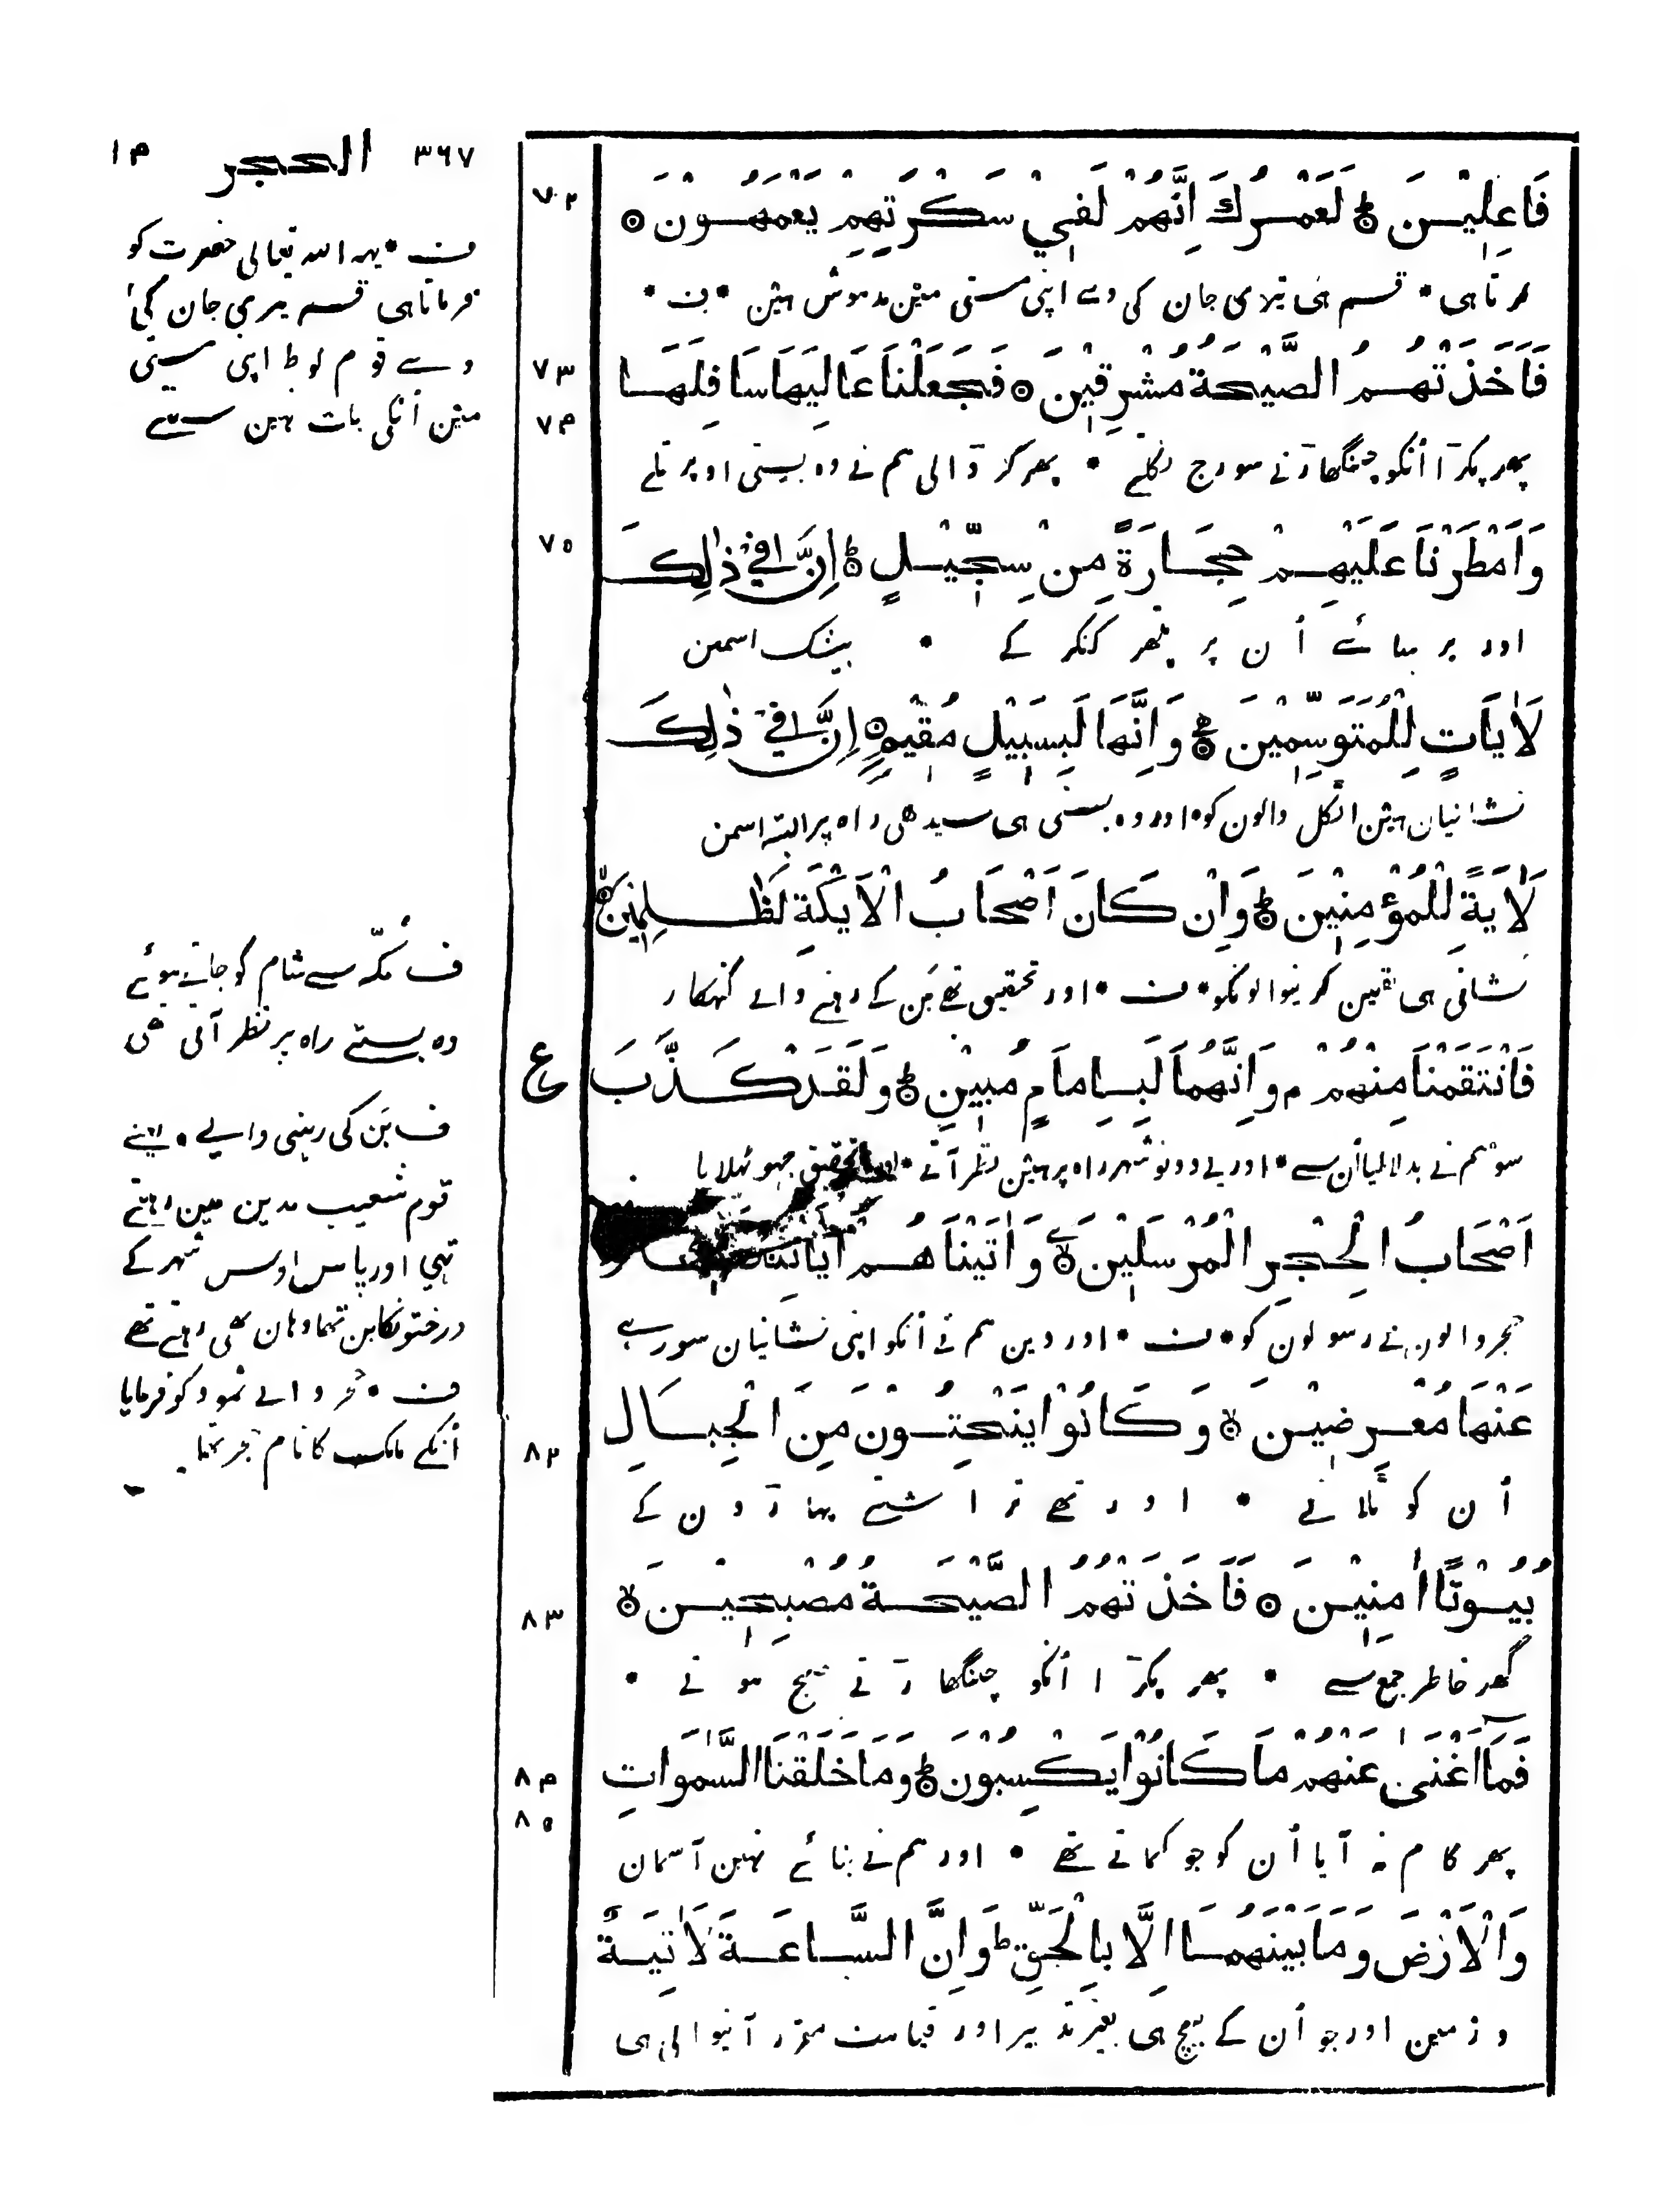 ۳۶۷ الحجر ۱۴
فَاعِلِيْنَ لَعَمْرُكَ اِنَّهُمْ لَفِيْ سَكْرَتِهِمْ يَعْمَهُوْنَ
۷۲
کرتاہی * قسم ہی تیری جان کی وے اپنی مستی مین مدہوش ہین * ف *
فَاَخَذَتْهُمُ الصَّيْحَةُ مُشْرِقِيْنَ فَجَعَلْنَا عَالِيَهَا سَافِلَهَا
۷۳
۷۴
پھر پکرّا اُنکو چنگھارّ نے سورج نکلے * پھر کرّ ڈالی ہم نے وہ بستی اوپر تلے
وَاَمْطَرْنَا عَلَيْهِمْ حِجَارَةً مِنْ سِجِّيْلٍ اِنَّ فِيْ ذٰلِكَ
۷۵
اور برسائے اُن پر پتھر کنکر کے * بیشک اسمین
لَاٰيَاتٍ لِلْمُتَوَسِّمِيْنَ وَاِنَّهَا لَبِسَبِيْلٍ مُقِيْمٍ اِنَّ فِيْ ذٰلِكَ
نشانیان ہین اٹکل والون کو * اور وہ بستی ہی سیدھی راہ پر البتہ اسمن
لَاٰيَةً لِلْمُؤْمِنِيْنَ وَاِنْ كَانَ اَصْحَابُ الْاَيْكَةِ لَظٰلِمِيْنَ
نشانی ہی یقین کرنیوالونکو * ف * اور تحقیق تھے بَن کے رہنے والے گنہکار
فَانْتَقَمْنَا مِنْهُمْ م وَاِنَّهُمَا لَبِاِمَامٍ مُبِيْنٍ وَلَقَدْ كَذَّبَ
ع
سو ہم نے بدلا لیا اُن سے * اور یے دونو شہر راہ پر ہین نظر آتے * اور تحقیق جہوٹھلایا
اَصْحَابُ الْحِجْرِ الْمُرْسَلِيْنَ وَاٰتَيْنَاهُمْ اٰيَاتِنَا
حجر والون نے رسولون کو * ف * اور دین ہم نے اُنکو اپنی نشانیان سو رہے
عَنْهَا مُعْرِضِيْنَ وَكَانُوْا يَنْحِتُوْنَ مِنَ الْجِبَالِ
۸۲
اُن کو ٹلاتے * اور تھے تراشتے پہارّون کے
بُيُوْتًا اٰمِنِيْنَ فَاَخَذَتْهُمُ الصَّيْحَةُ مُصْبِحِيْنَ
۸۳
گھر خاطر جمع سے * پھر پکرّا اُنکو چنگھارّ نے صبح ہوتے *
فَمَا اَغْنَىٰ عَنْهُمْ مَا كَانُوْا يَكْسِبُوْنَ وَمَا خَلَقْنَا السَّمٰوَاتِ
۸۴
۸۵
پھر کام نہ آیا اُن کو جو کماتے تھے * اور ہم نے بنائے نہین آسمان
وَالْاَرْضَ وَمَا بَيْنَهُمَا اِلَّا بِالْحَقِّ ط وَاِنَّ السَّاعَةَ لَاٰتِيَةٌ
و زمین اور جو اُن کے بیچ ہی بغیر تدبیر اور قیامت مقرّر آنیوالی ہی
ف * یہہ اللہ تعالی حضرت کو
فرماتاہی قسم تیری جان کی
وے قوم لوط اپنی مستی
مین اُنکی بات نہین سنتے
ف مکّہ سے شام کو جاتے ہوئے
وہ بستے راہ پر نظر آتی تھی
ف بَن کی رہنی والے * یعنے
قوم شعیب مدین مین رہتے
تہی اور پاس اوس شہر کے
درختونکا بن تھا وہان بھی رہتے تھے
ف * حجر والے ثمود کو فرمایا
اُنکے ملک کا نام حجر تھا